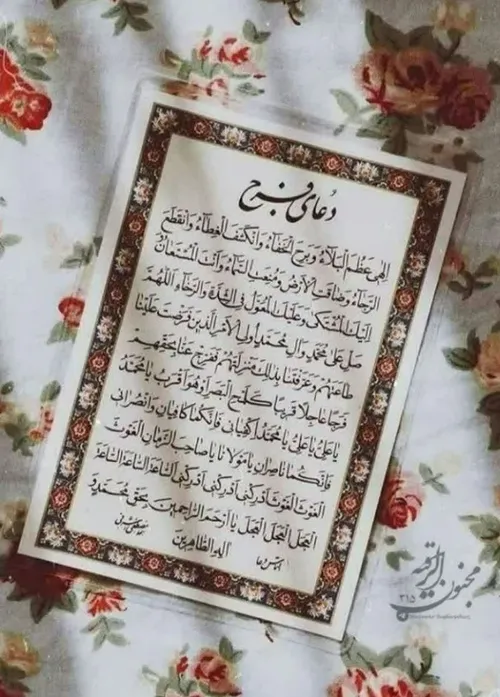 دعای فرج
اِلٰهی عَظُمَ الْبَلَاءُ وَبَرِحَ الْخَفَاءُ وَانْكَشَفَ الْغِطَاءُ وَانْقَطَعَ
الرَّجَاءُ وَضَاقَتِ الْاَرْضُ وَمُنِعَتِ السَّمَاءُ وَاَنْتَ الْمُسْتَعَانُ وَ
اِلَيْكَ الْمُشْتَكىٰ وَعَلَيْكَ الْمُعَوَّلُ فِى الشِّدَّةِ وَالرَّخَاءِ اَللّٰهُمَّ
صَلِّ عَلىٰ مُحَمَّدٍ وَاٰلِ مُحَمَّدٍ اُولِى الْاَمْرِ الَّذينَ فَرَضْتَ عَلَيْنَا
طَاعَتَهُمْ وَعَرَّفْتَنَا بِذٰلِكَ مَنْزِلَتَهُمْ فَفَرِّجْ عَنَّا بِحَقِّهِمْ
فَرَجًا عَاجِلًا قَرِيبًا كَلَمْحِ الْبَصَرِ اَوْ هُوَ اَقْرَبُ يَا مُحَمَّدُ
يَا عَلِىُّ يَا عَلِىُّ يَا مُحَمَّدُ اِكْفِيَانِى فَاِنَّكُمَا كَافِيَانِ وَانْصُرَانِى
فَاِنَّكُمَا نَاصِرَانِ يَا مَوْلَانَا يَا صَاحِبَ الزَّمَانِ الْغَوْثَ
الْغَوْثَ الْغَوْثَ اَدْرِكْنِى اَدْرِكْنِى اَدْرِكْنِى السَّاعَةَ السَّاعَةَ السَّاعَةَ
الْعَجَلَ الْعَجَلَ الْعَجَلَ يَا اَرْحَمَ الرَّاحِمِينَ بِحَقِّ مُحَمَّدٍ وَ
اٰلِهِ الطَّاهِرِينَ
التماس دعا
مجنون الرقیه
۳۱۵